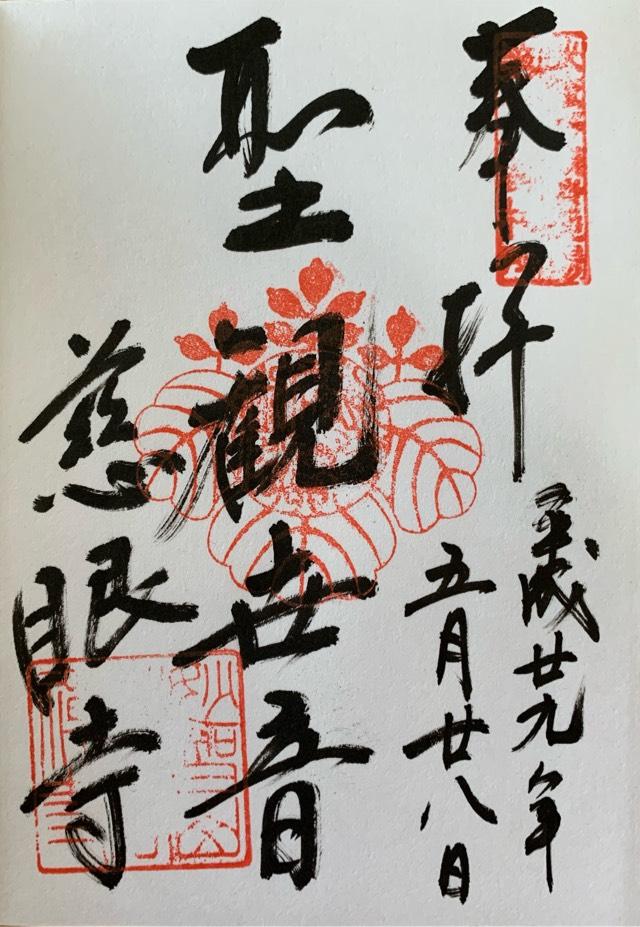 奉拝
平成廿九年
五月廿八日
聖観世音
慈眼寺